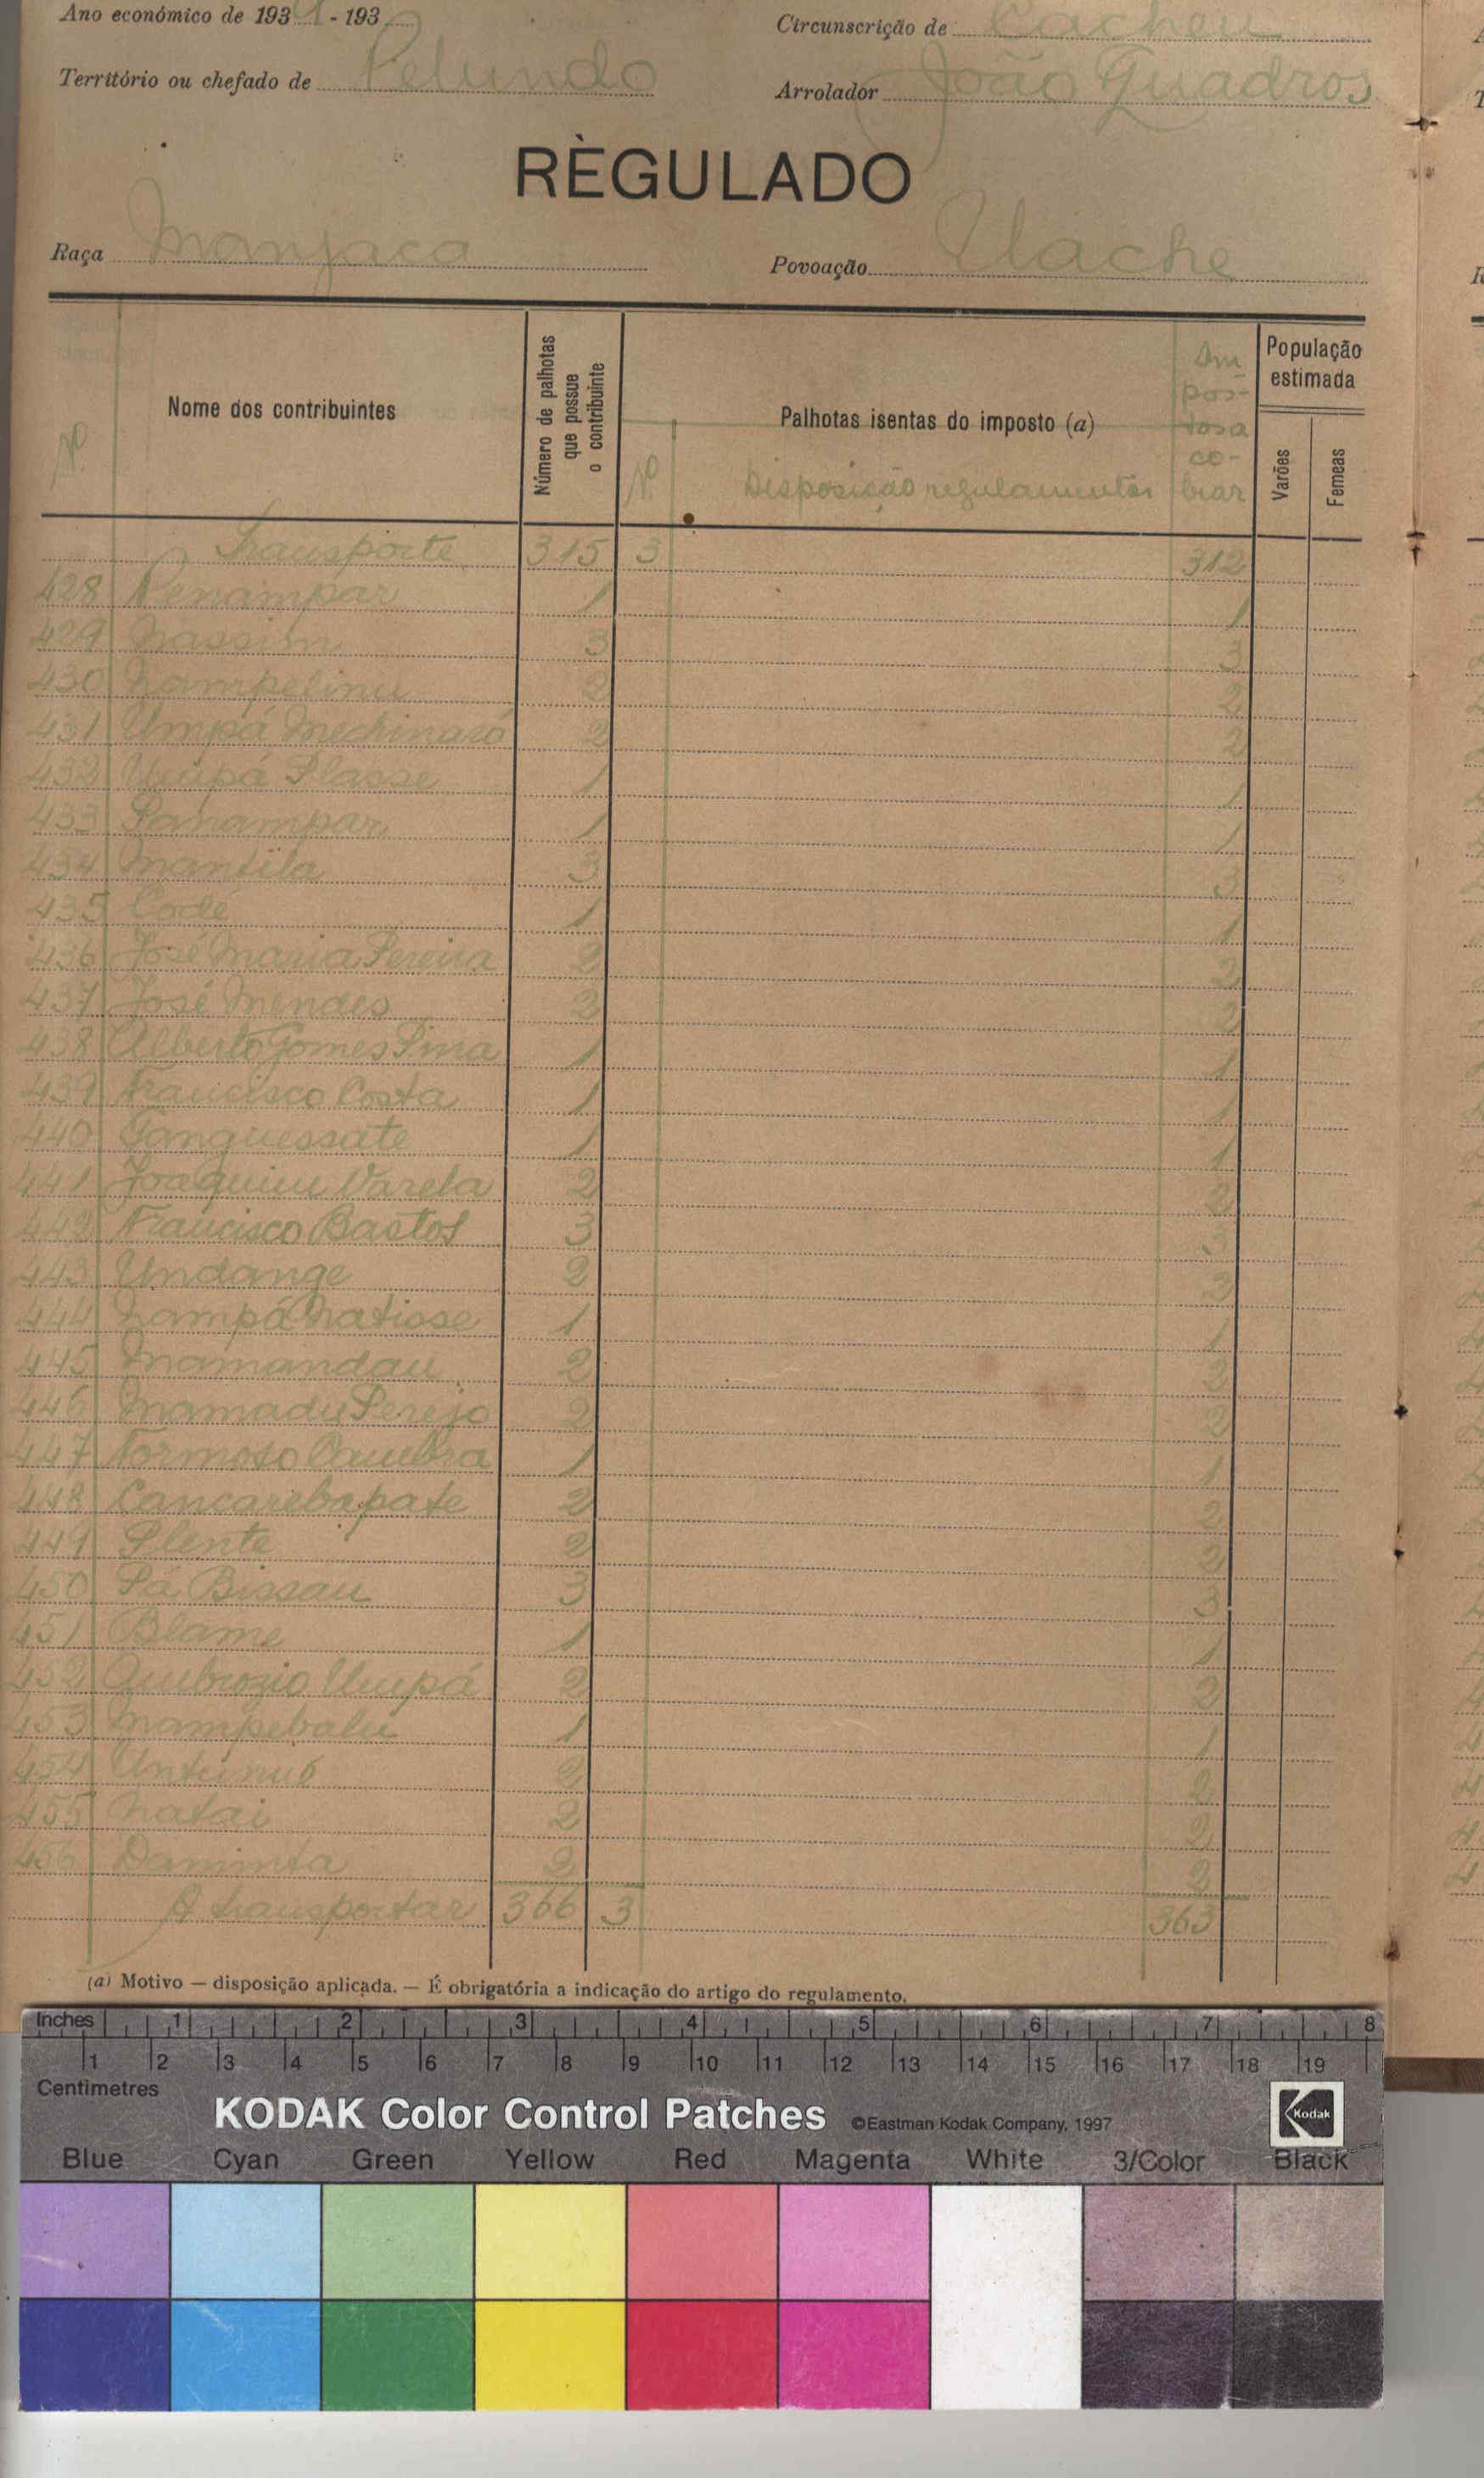 Ano económico de 1931 - 193
Circunscrição de Cacheu
Território ou chefado de Pelundo
Arrolador João Quadros
RÈGULADO
Raça Manjaca
Povoação Clache
Nº
Nome dos contribuintes
Número de palhotas que possue o contribuinte
Palhotas isentas do imposto (a)
Nº
Disposição regulamentar
Im
pos-
tos a
co-
brar
População estimada
Varões
Femeas
Transporte 315 3 312
428 Penampar 1 1
429 Nassim 3 3
430 Nampelinu 2 2
431 Umpá Mechinaró 2 2
432 Umpá Plasse 1 1
433 Panampar 1 1
434 Mantila 3 3
435 Codé 1 1
436 José Maria Pereira 2 2
437 José Mendes 2 2
438 Alberto Gomes Pina 1 1
439 Francisco Costa 1 1
440 Tanguessate 1 1
441 Joaquim Varela 2 2
442 Francisco Bastos 3 3
443 Undange 2 2
444 Nampá Natiosse 1 1
445 Mamandau 2 2
446 Mamadu Pereijo 2 2
447 Formoso Cambra 1 1
448 Cancarebapate 2 2
449 Plente 2 2
450 Pá Bissau 3 3
451 Blame 1 1
452 Ambrozio Umpá 2 2
453 Mampebalu 1 1
454 Untinub 2 2
455 Natai 2 2
456 Daminta 2 2
A transportar 366 3 363
(a) Motivo — disposição aplicada. — É obrigatória a indicação do artigo do regulamento.
Inches 1 2 3 4 5 6 7 8
1 2 3 4 5 6 7 8 9 10 11 12 13 14 15 16 17 18 19
Centimetres
KODAK Color Control Patches ©Eastman Kodak Company, 1997 Kodak
Blue Cyan Green Yellow Red Magenta White 3/Color Black